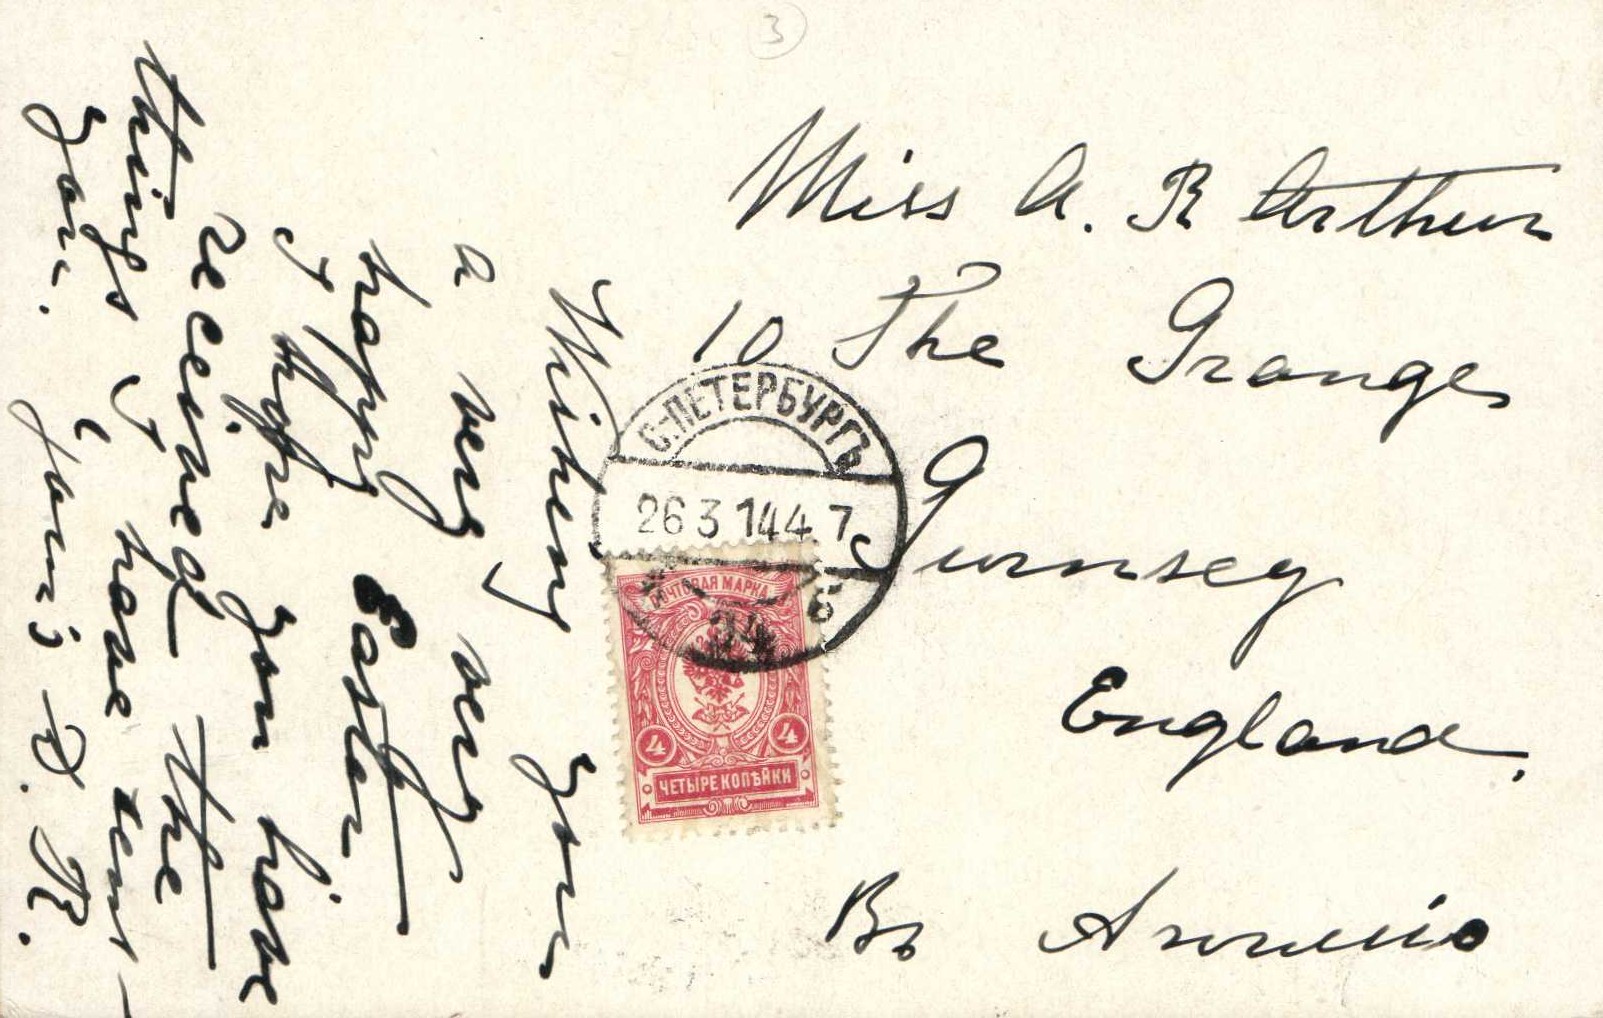 3
Miss A. R Arthur
10 The Grange
Gurnsey
England.
Въ Англію
С.-ПЕТЕРБУРГЪ
26 3 14 4 7
34
ПОЧТОВАЯ МАРКА
4 4
ЧЕТЫРЕ КОПѢЙКИ
Wishing you
a very very
happy Easter
I hope you have
received the
things I have sent
you. Yours D. R.